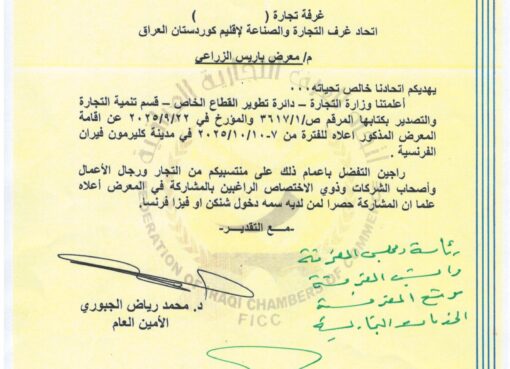 غرفة تجارة ( )
اتحاد غرف التجارة والصناعة لإقليم كوردستان العراق
م/ معرض باريس الزراعي
يهديكم اتحادنا خالص تحياته...
أعلمتنا وزارة التجارة – دائرة تطوير القطاع الخاص – قسم تنمية التجارة
والتصدير بكتابها المرقم ص/٣٦١٧/١ والمؤرخ في ٢٠٢٥/٩/٢٢ عن اقامة
المعرض المذكور أعلاه للفترة من ٧-٢٠٢٥/١٠/١٠ في مدينة كليرمون فيران
الفرنسية .
راجين التفضل باعمام ذلك على منتسبيكم من التجار ورجال الأعمال
وأصحاب الشركات وذوي الاختصاص الراغبين بالمشاركة في المعرض أعلاه
علما ان المشاركة حصرا لمن لديه سمه دخول شنكن او فيزا فرنسا.
-مع التقدير-
د. محمد رياض الجبوري
الأمين العام
FEDERATION OF IRAQI CHAMBERS OF COMMERCE
FICC